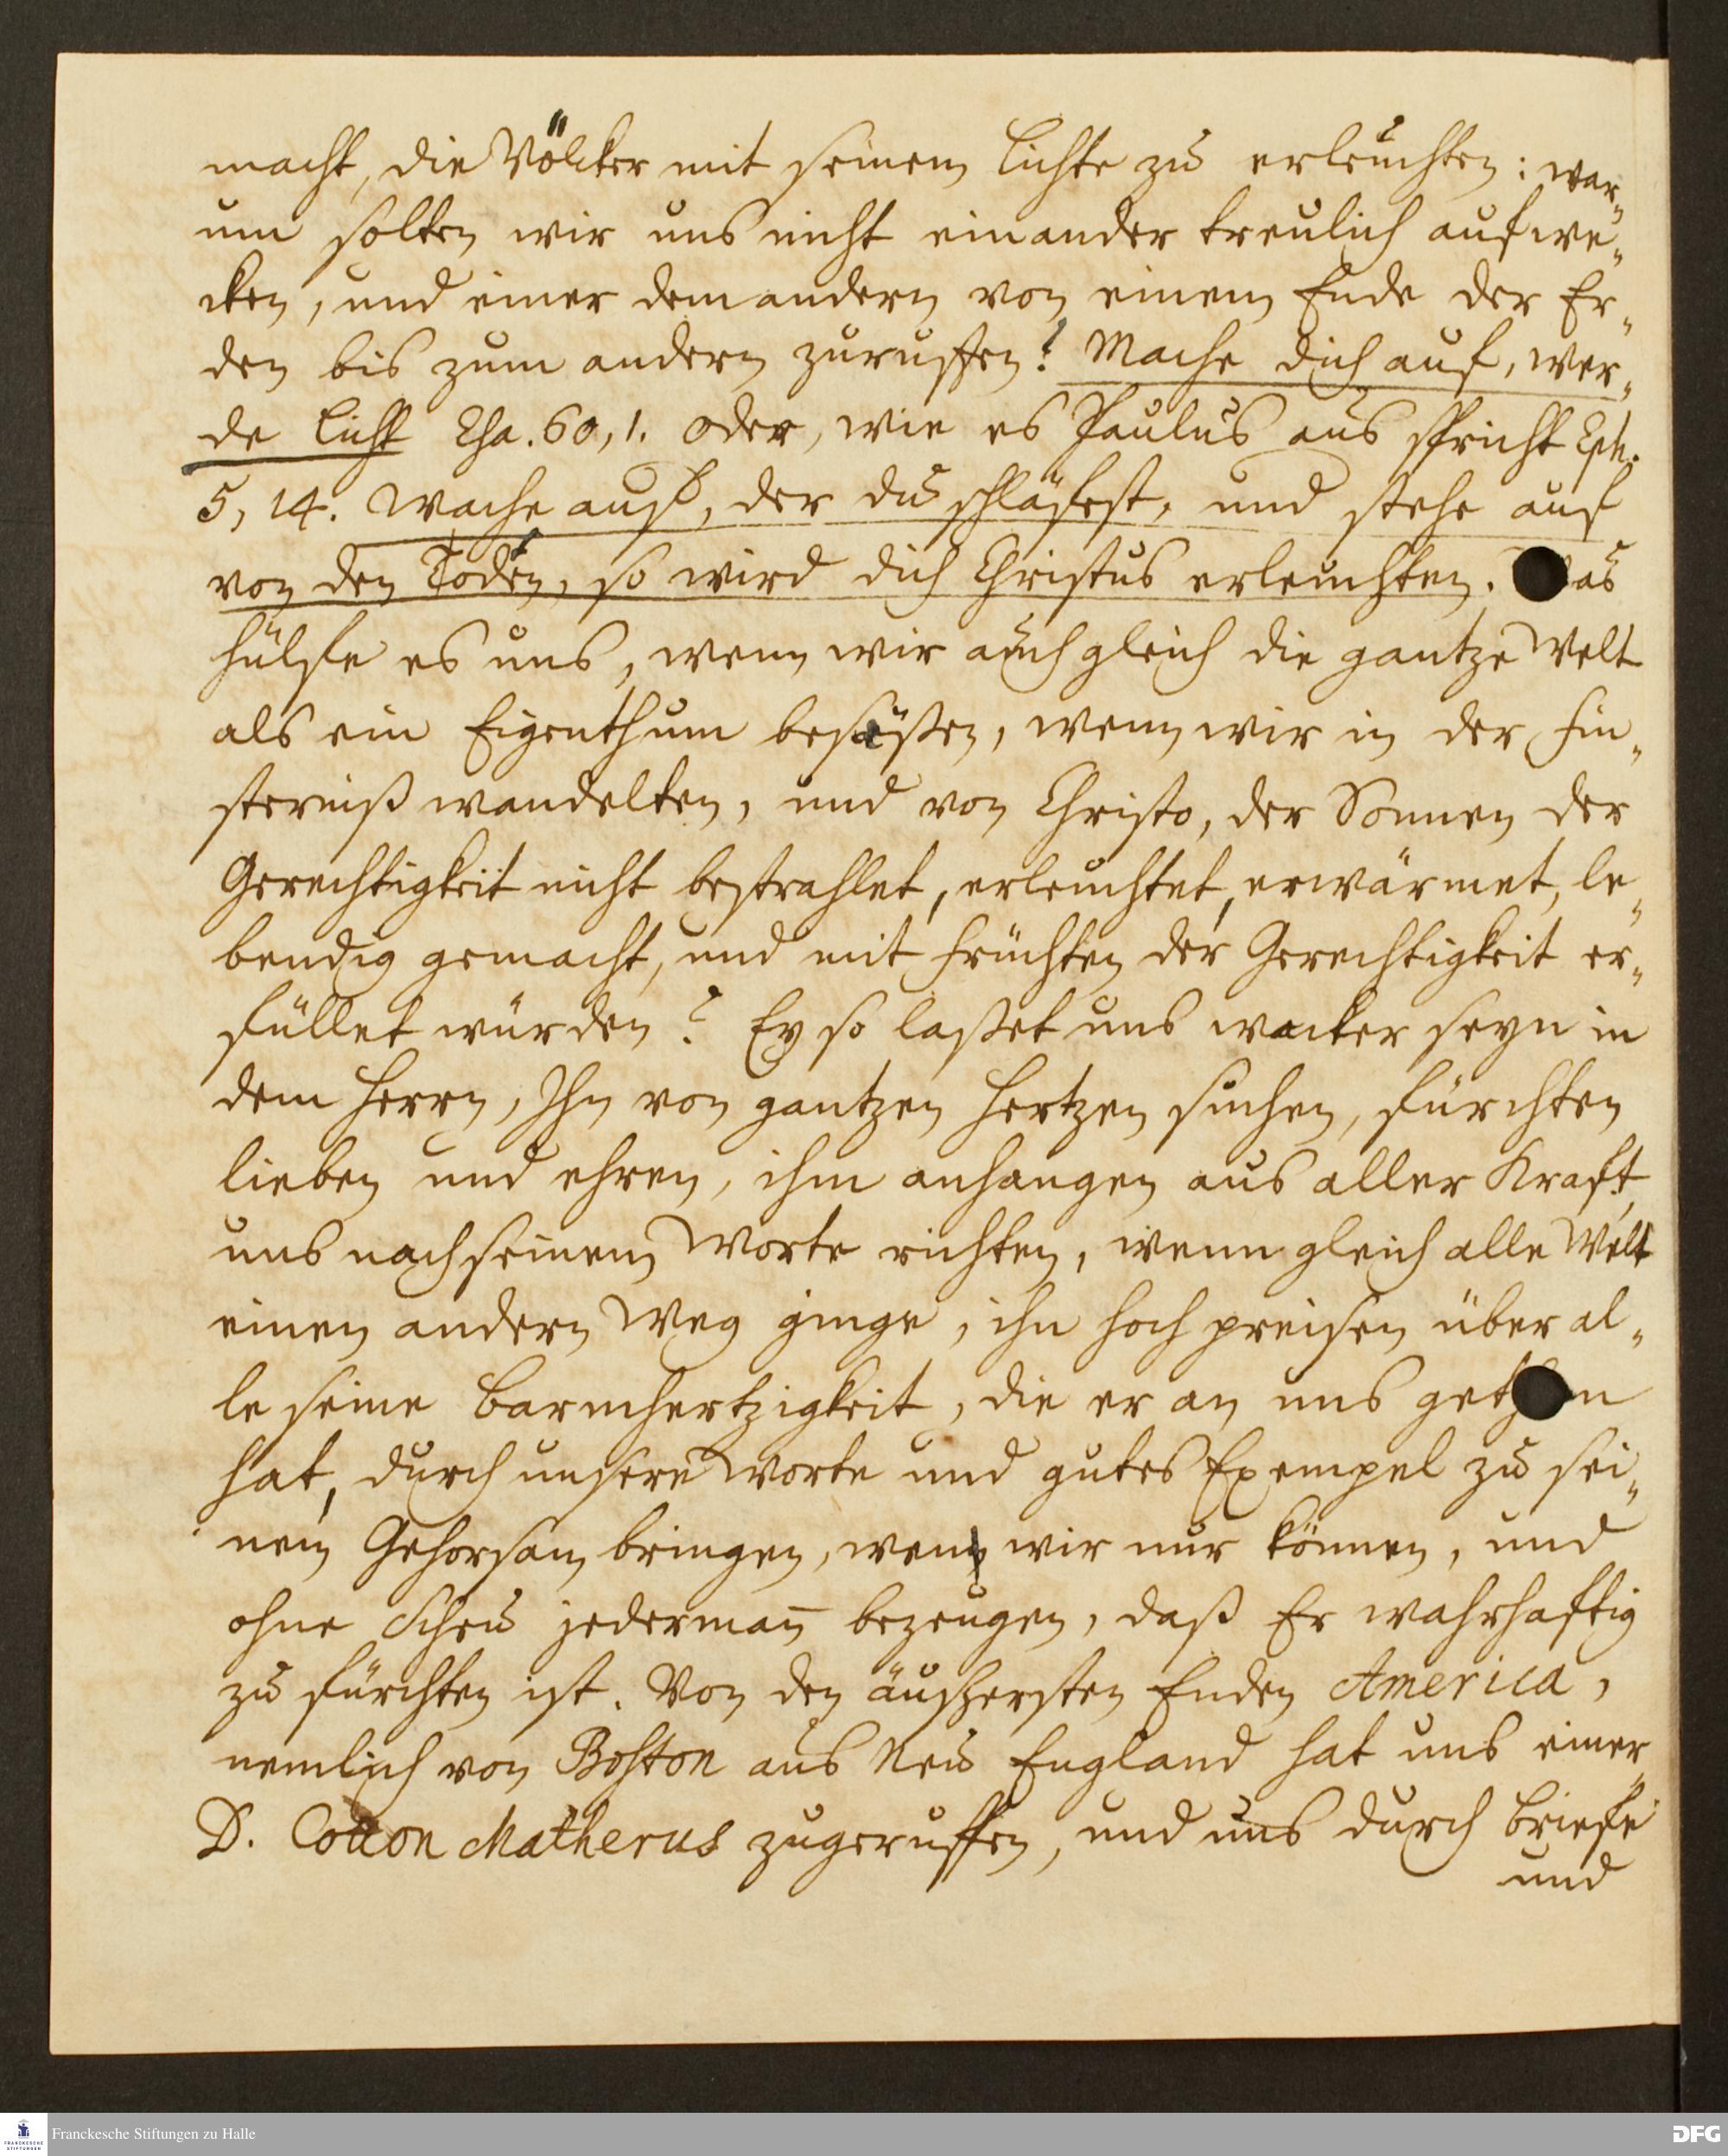 macht, die Völcker mit seinem Lichte zu erleuchten: war„
um solten wir uns nicht einander treulich aufwe„
cken, und einer dem andern von einem Ende der Er„
den bis zum andern zuruffen: Mache dich auf, wer„
de Licht Esa. 60, 1. oder, wie es Paulus aus spricht Eph.
5, 14. Wache auf, der du schläfest, und stehe auf
von den Todten, so wird dich Christus erleuchten. Was
hülfe es uns, wenn wir auch gleich die gantze Welt
als ein Eigenthum besäßen, wenn wir in der Fin„
sterniß wandelten, und von Christo, der Sonnen der
Gerechtigkeit nicht bestrahlet, erleuchtet, erwärmet, le„
bendig gemacht, und mit Früchten der Gerechtigkeit er„
füllet würden? Ey so laßet uns wacker seyn in
dem Herrn, Ihn von gantzen Hertzen suchen, fürchten
lieben und ehren, ihm anhangen aus aller Kraft,
uns nach seinem Worte richten, wenn gleich alle Welt
einen andern Weg ginge, ihn hoch preisen über al„
le seine Barmhertzigkeit, die er an uns gethan
hat, durch unsere Worte und gutes Exempel zu sei„
nem Gehorsam bringen, wen wir nur können, und
ohne Scheu jederman̄ bezeugen, daß Er wahrhaftig
zu fürchten ist. Von den äußersten Enden America,
nemlich von Boston aus Neu England hat uns einer,
D. Cotton Matherus zugeruffen, und uns durch Briefe
und
Franckesche Stiftungen zu Halle
FRANCKESCHE STIFTUNGEN
DFG